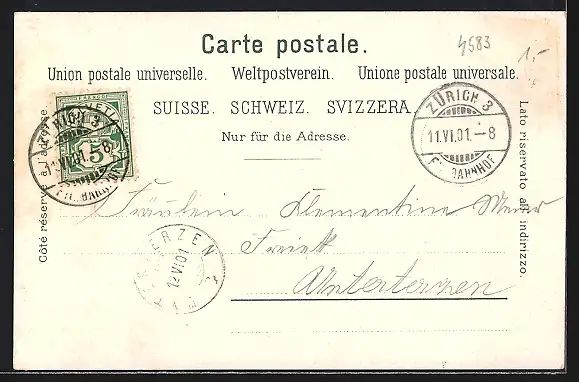 4583
1.-
Carte postale.
Union postale universelle. Weltpostverein. Unione postale universale.
SUISSE. SCHWEIZ. SVIZZERA.
Nur für die Adresse.
Côté réservé à l'adresse.
Lato riservato all' indirizzo.
FRANCO
HELVETIA
5
ZÜRICH 3
11.VI.01.-8
BAHNHOF
ZÜRICH 3
11.VI.01.-8
BAHNHOF
Fräulein Clementine Meier
Unterterzen
UNTERTERZEN
12 VI 01